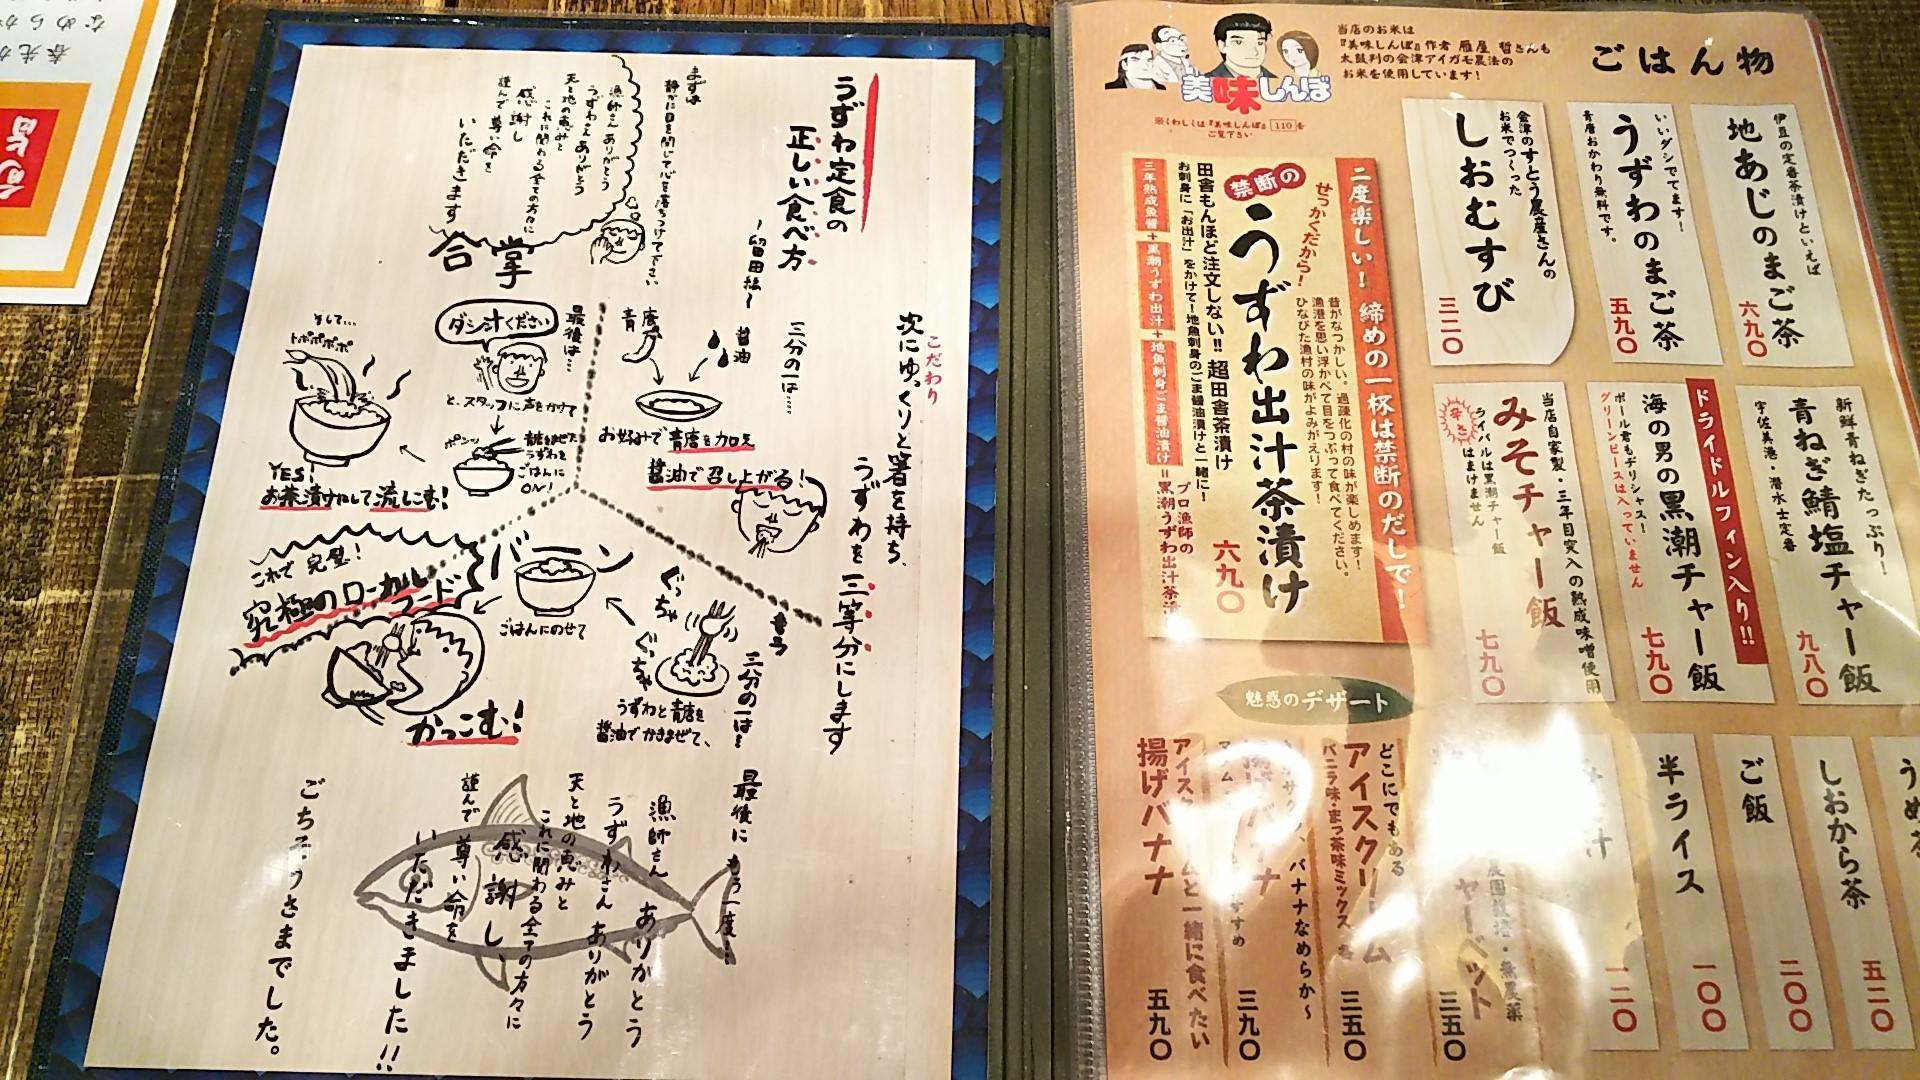 うずわ定食の
正しい食べ方
〜留田編〜
まずは
静かに目を閉じて心を落ちつけて下さい
漁師さん ありがとう
うずわさん ありがとう
天と地の恵みと
これに関わる全ての方々に
感謝し
謹んで 尊い命を
いただきます
合掌
こだわり
次にゆっくりと箸を持ち、
うずわを 三等分にします
三分の一は……
醤油
青唐
お好みで青唐を加え
醤油で召し上がる!
もう
三分の一は…
ぐっちゃ
ぐっちゃ
うずわと青唐を
醤油でかきまぜて、
ごはんにのせて
バーン
かっこむ!
これで完璧!
究極のローカルフード
最後は…
ダシ汁ください
と、スタッフに声をかけて
青唐をまぜた
うずわを
ごはんに
ON!
ポンッ
そして…
トポポポポ
YES!
お茶漬けにして流しこむ!
最後にもう一度…
漁師さん ありがとう
うずわさん ありがとう
天と地の恵みと
これに関わる全ての方々に
感謝し、
謹んで 尊い命を
いただきました!!
ごちそうさまでした。
ごはん物
当店のお米は
『美味しんぼ』作者 雁屋 哲さんも
太鼓判の会津アイガモ農法の
お米を使用しています!
美味しんぼ
※くわしくは『美味しんぼ』110を
ご覧下さい
伊豆の定番茶漬けといえば
地あじのまご茶
六九〇
いいダシでてます!
うずわのまご茶
青唐おかわり無料です。
五九〇
会津のすとう農産さんの
お米でつくった
しおむすび
三二〇
二度楽しい! 締めの一杯は禁断のだしで!
せっかくだから!
昔がなつかしい。過疎化の村の味が楽しめます!
漁港を思い浮かべて目をつぶって食べてください。
ひなびた漁村の味がよみがえります!
禁断の
うずわ出汁茶漬け
六九〇
田舎もんほど注文しない!! 超田舎茶漬け
お刺身に「お出汁」をかけて!地魚刺身のごま醤油漬けと一緒に!
三年熟成魚醤+黒潮うずわ出汁+地魚刺身ごま醤油漬け
=プロ漁師の
黒潮うずわ出汁茶漬
新鮮青ねぎたっぷり!
青ねぎ鯖塩チャー飯
宇佐美港・潜水士定番
九八〇
ドライドルフィン入り!!
海の男の黒潮チャー飯
ポール君もヂリシャス!
グリーンピースは入っていません
七九〇
当店自家製・三年目突入の熟成味噌使用
みそチャー飯
ライバルは黒潮チャー飯
辛さ
はまけません
七九〇
魅惑のデザート
しおから茶
二〇〇
ご飯
一〇〇
半ライス
五二〇
一二〇
どこにでもある
アイスクリーム
バニラ味・まっ茶味ミックス
三五〇
三五〇
バナナなめらか〜
三九〇
揚げバナナ
五九〇